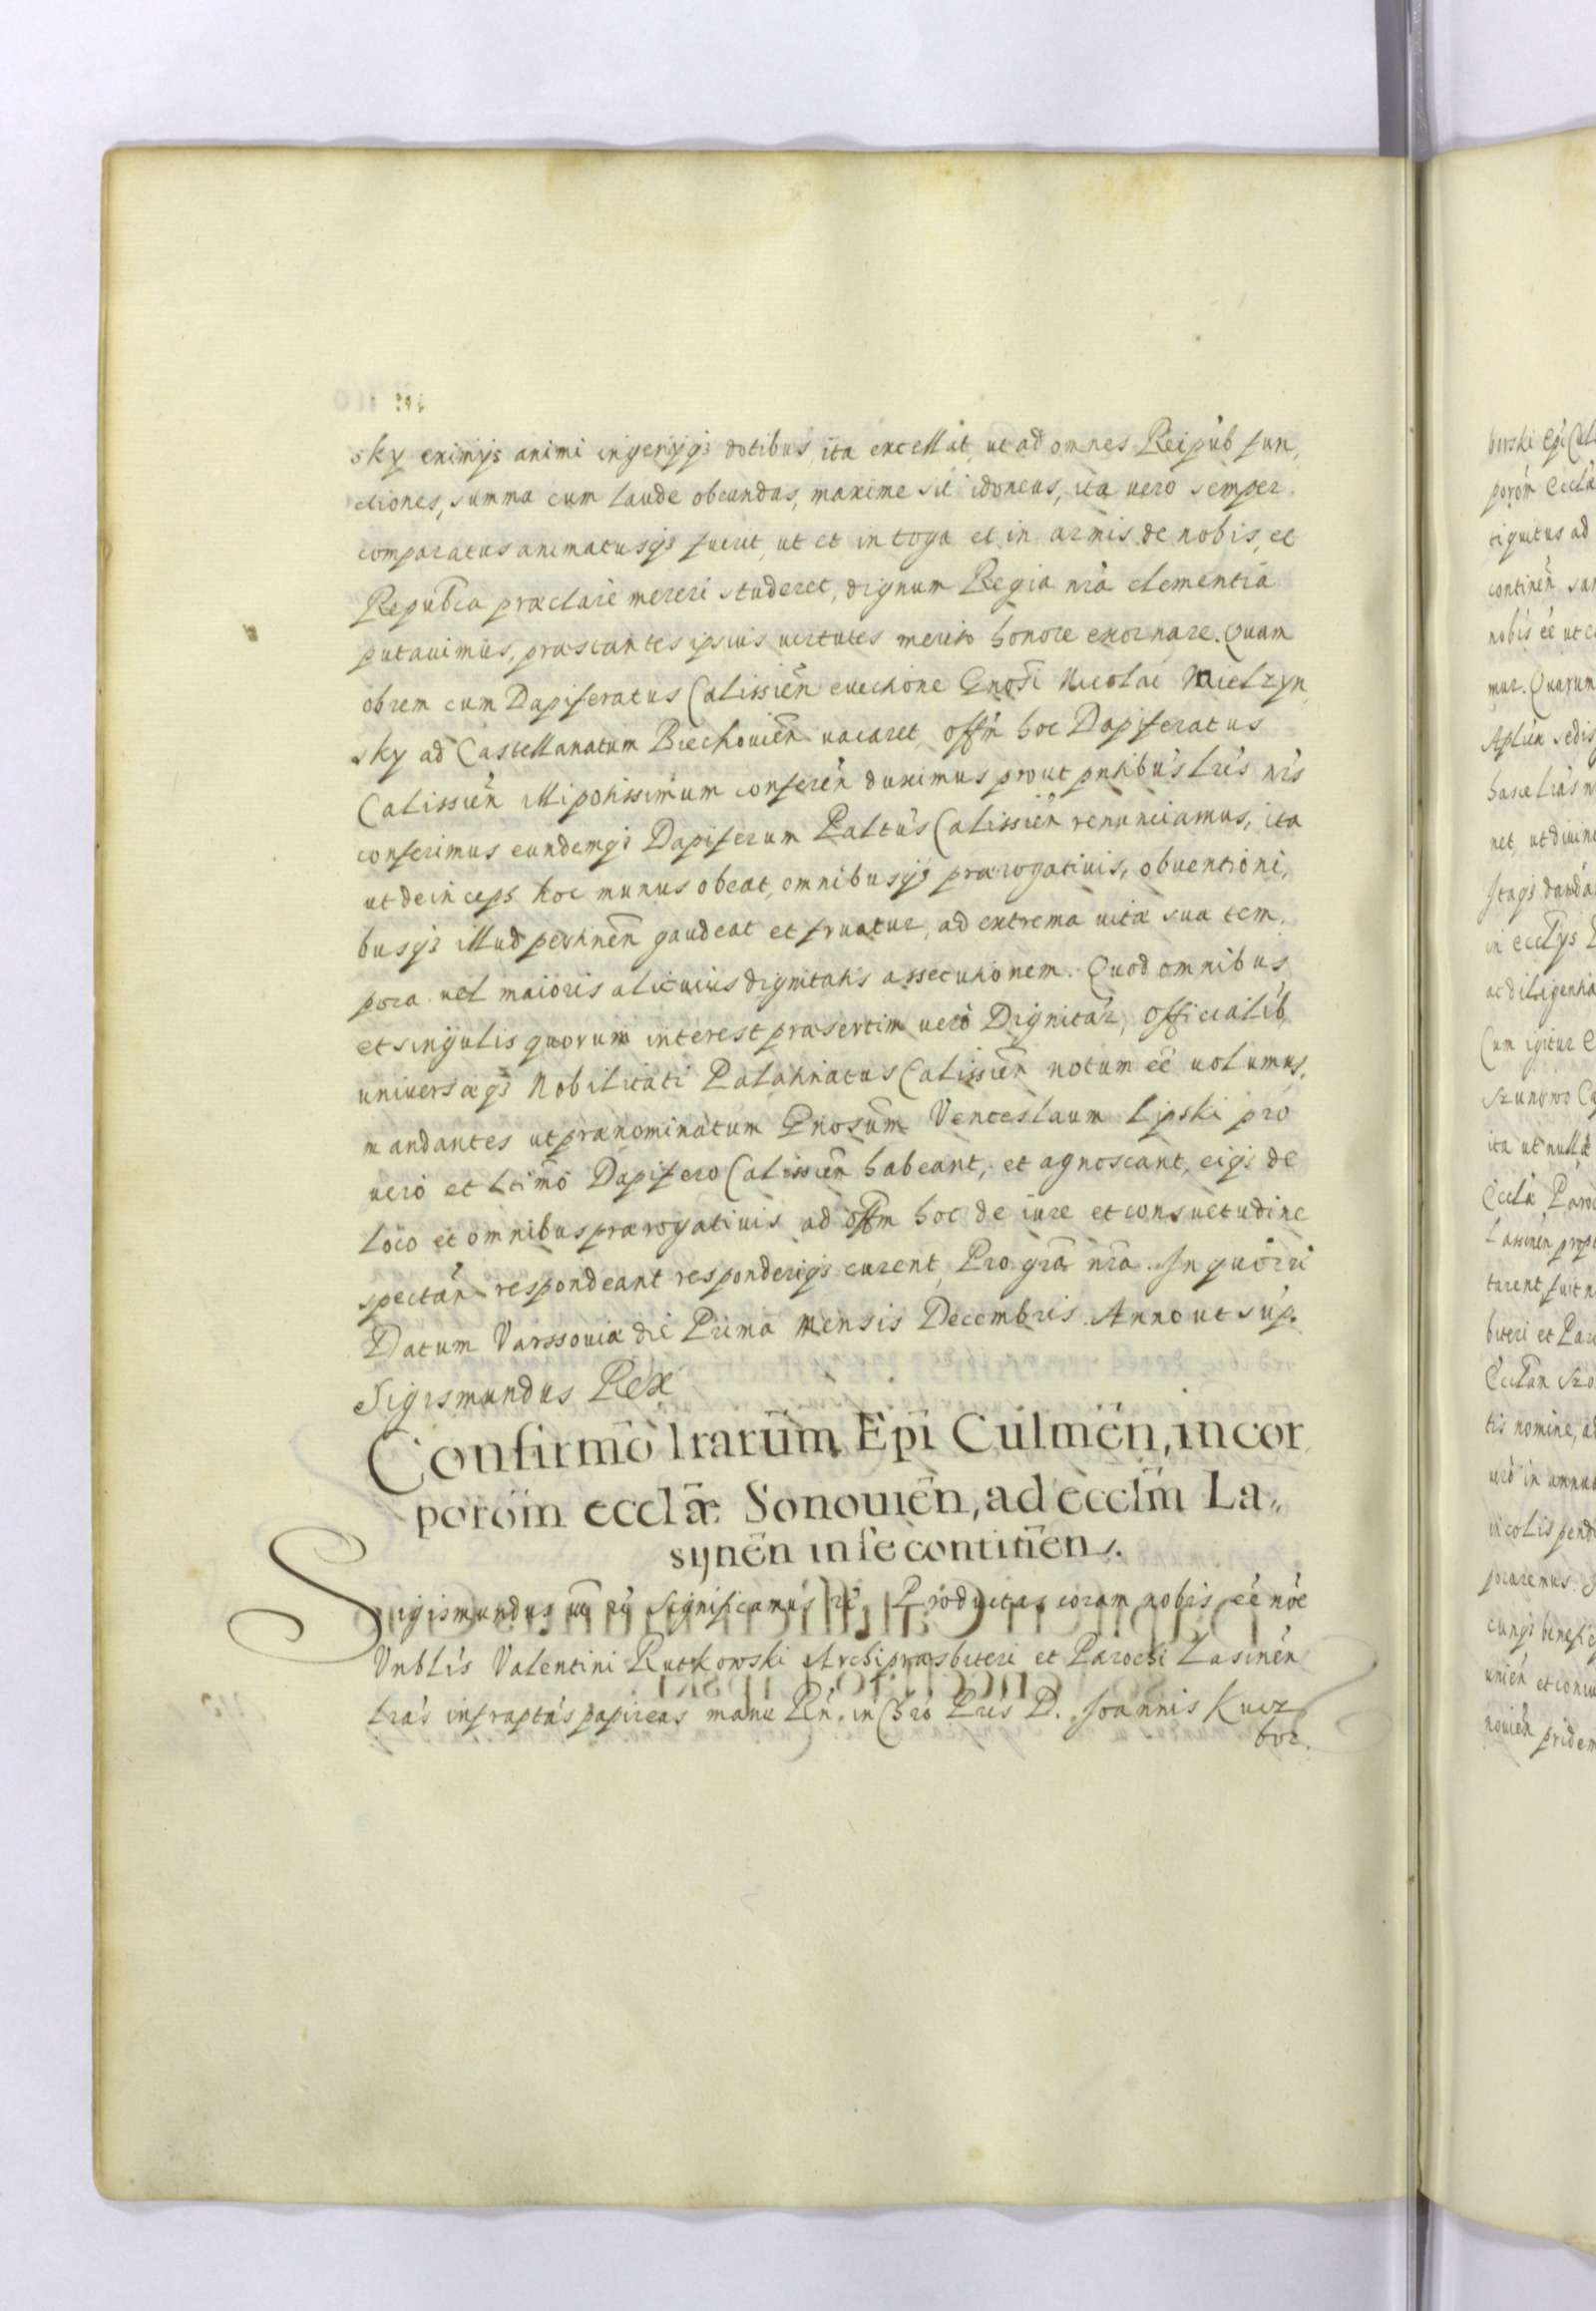 sky eximijs animi ingenijqs dotibus, ita excellat, ut ad omnes Reipub fun,
ctiones, summa cum laude obeundas, maxime sit idoneus, ita vero semper
comparatus animatusqs fuerit, ut et in toga et in armis de nobis, et
Repubca præclare mereri studeret, dignum Regia nrâ clementia
putauimus, præstantes ipsius virtutes merito honore exornare. Quam
obrem cum Dapiferatus Calissien̄ euectione Gnosi Nicolai Mielzyn,
sky ad Castellanatum Biechouien̄ vacaret, offm hoc Dapiferatus
Calissien̄ illi potissimum conferen̄ duximus prout pntibus lris nris
conferimus eundemqs Dapiferum Paltus Calissien̄ renunciamus, ita
ut deinceps hoc munus obeat, omnibusqs prærogatiuis, obuentioni,
busqs illud pertinen̄ gaudeat et fruatur, ad extrema vitæ suæ tem,
pora vel maioris alicuius dignitatis assecutionem. Quod omnibus
et singulis quorum interest præsertim vero Dignitar, Officialib,
universæqs Nobilitati Palatinatus Calissien̄ notum eē uolumus,
mandantes ut prænominatum Gnosum Venceslaum Lipski pro
vero et ltimo Dapifero Calissien̄ habeant, et agnoscant, eiqs de
loco et omnibus prærogatiuis ad offm hoc de iure et consuetudine
spectan̄ respondeant responderiqs curent, Pro gra nra. In quor̄ ri
Datum Varssouiæ die Prima mensis Decembris Anno ut sup.
Sigismundus Rex
Confirmo lrarum Epi Culmen̄, incor,
porom ecclæ Sonouien̄, ad ecclm La,,
sijnen̄ in se continen̄s.
Sigismundus Significamus Productas coram nobis eē nōe
Vnblis Valentini Rutkowski Archipræsbiteri et Parochi Lasinen̄
lras infraptas papireas manu Rn. in Chro Pris D. Joannis Kucz
bor.